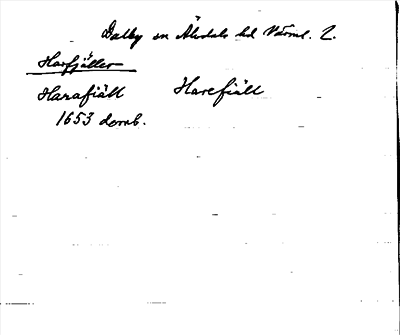 Dalby sn Älvdals hd Värml. L.
Harfjället
Harafiäll Harefiäll
1653 domb.